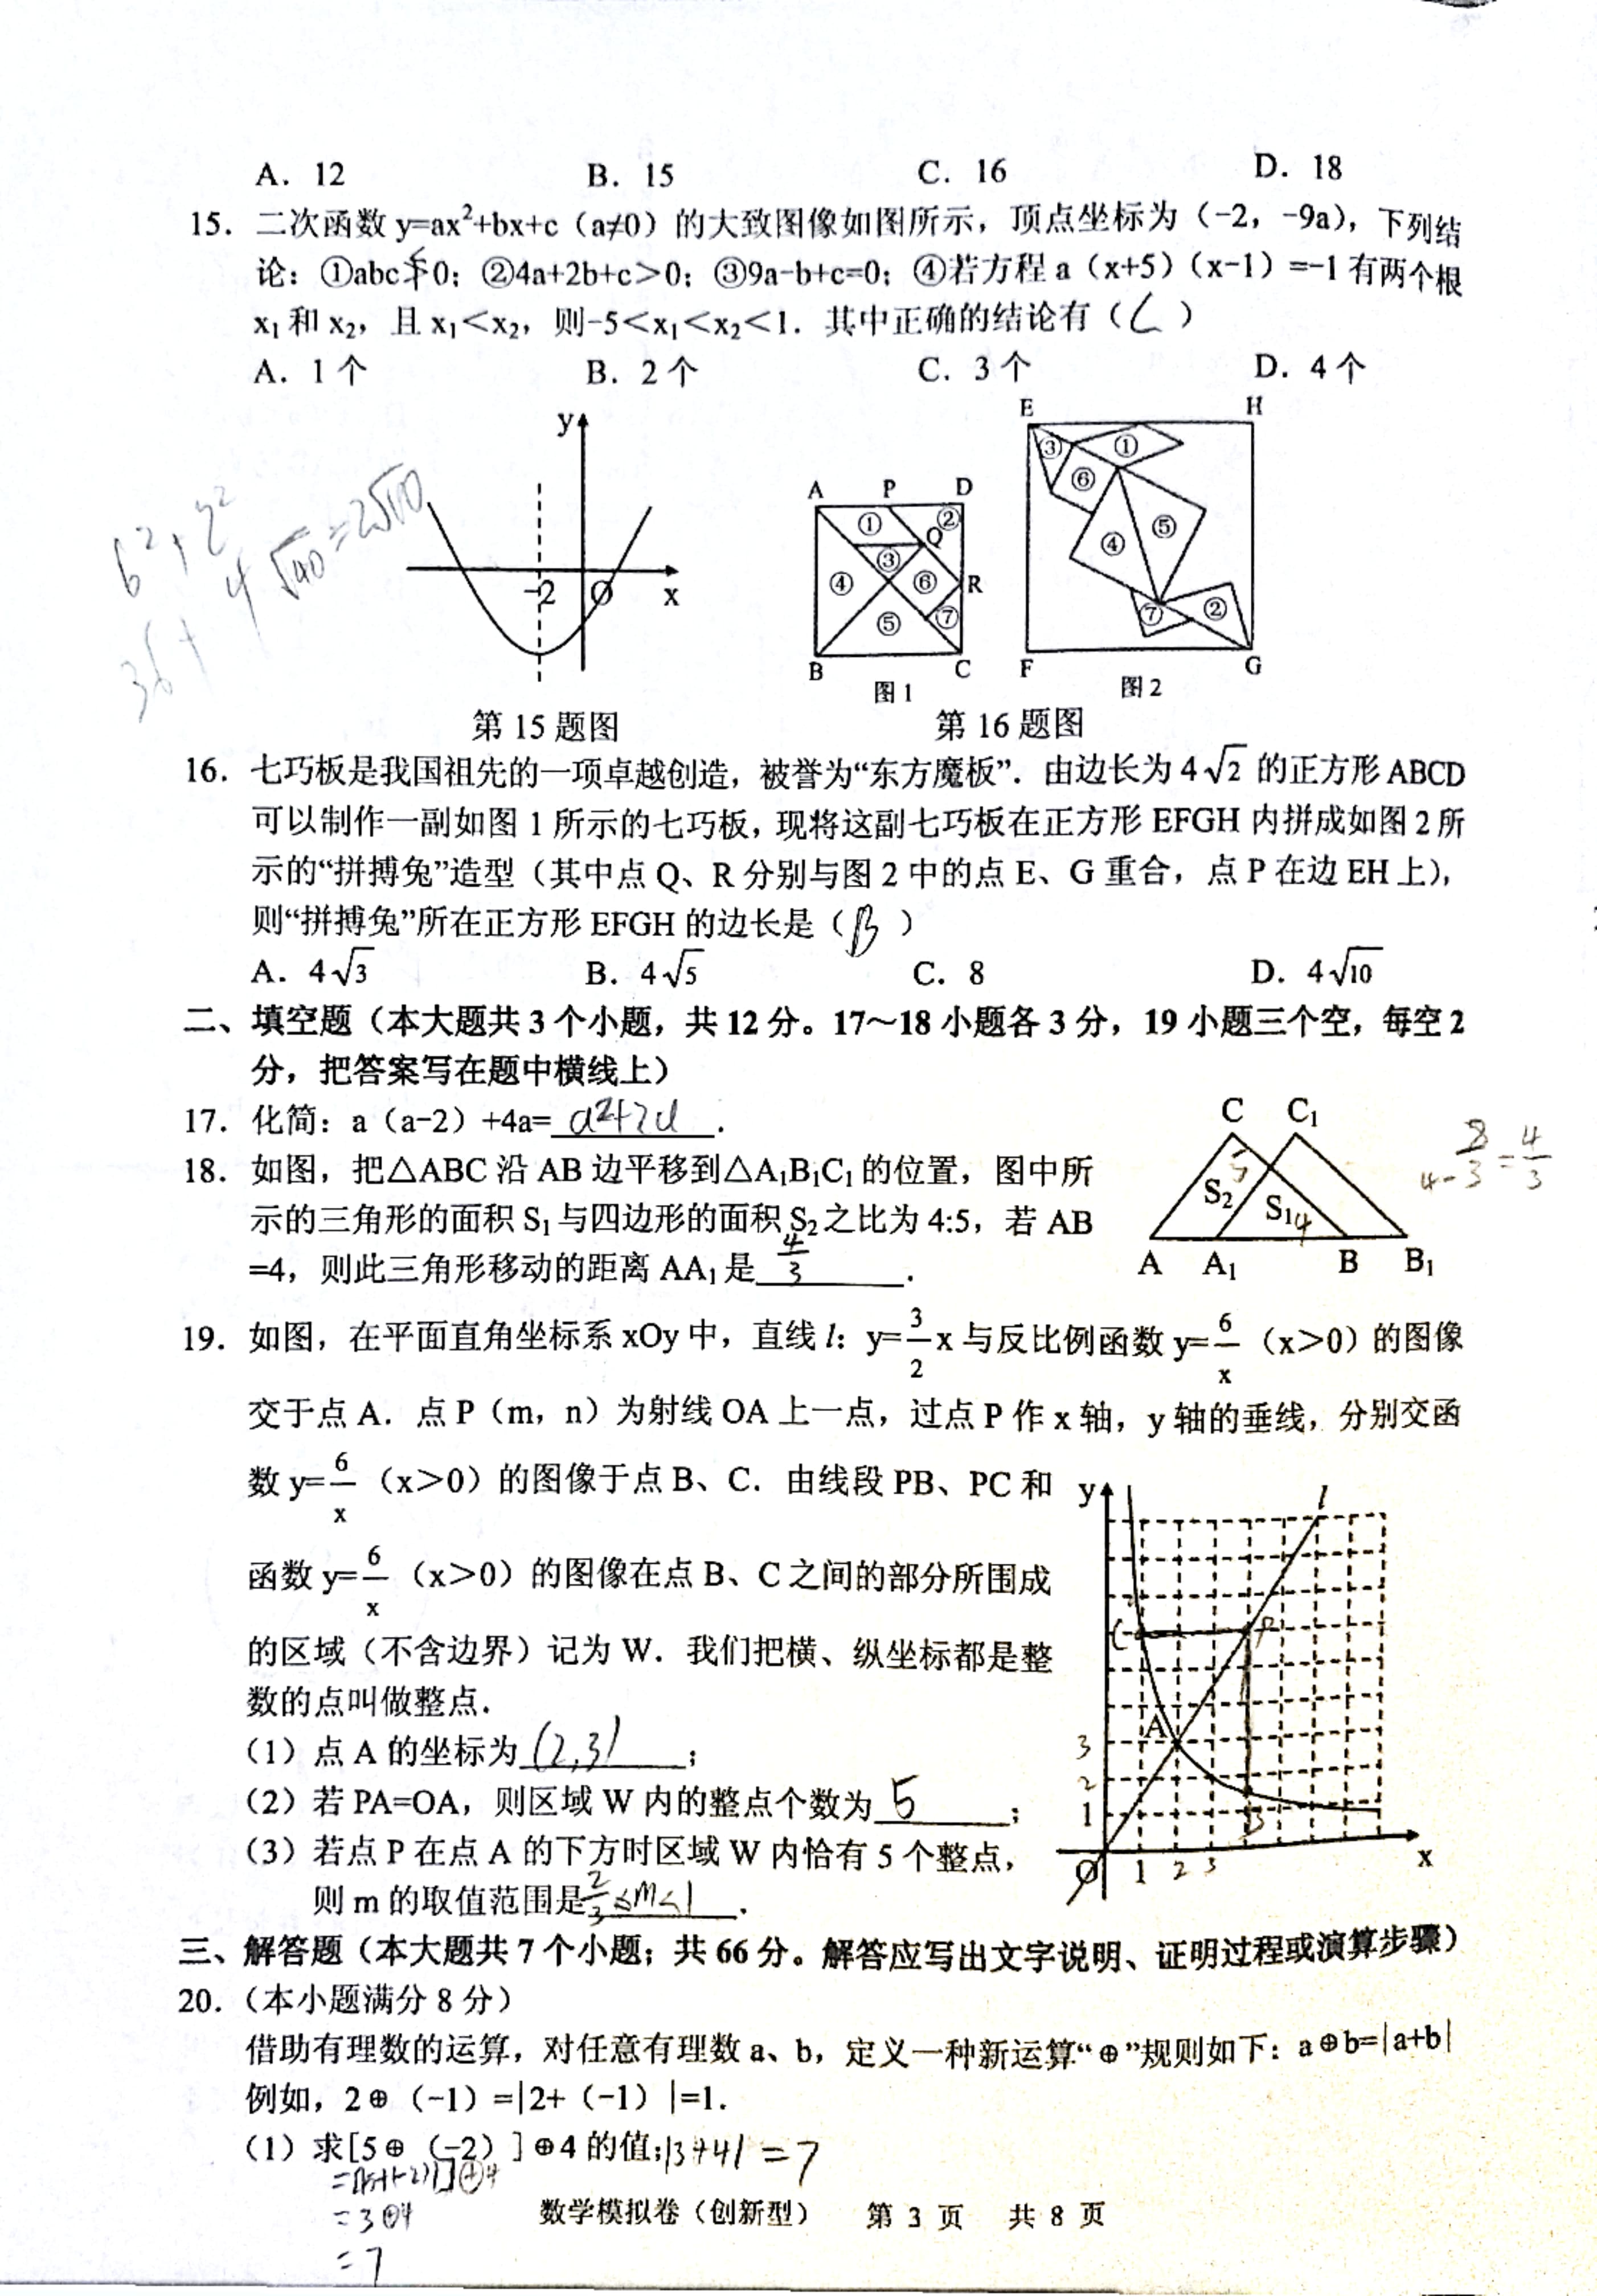 A. 12 B. 15 C. 16 D. 18
15. 二次函数 y=ax²+bx+c（a≠0）的大致图像如图所示，顶点坐标为（-2，-9a），下列结
论：①abc<0；②4a+2b+c＞0；③9a-b+c=0；④若方程 a（x+5）（x-1）=-1 有两个根
x₁ 和 x₂，且 x₁＜x₂，则-5＜x₁＜x₂＜1．其中正确的结论有（C）
A. 1 个 B. 2 个 C. 3 个 D. 4 个
y
-2 O x
6², 2²
36+4 √40=2√10
A P D
① ② Q
③
④ ⑥ R
⑤ ⑦
B C
图 1
E H
③ ①
⑥
④ ⑤
⑦ ②
F G
图 2
第 15 题图 第 16 题图
16. 七巧板是我国祖先的一项卓越创造，被誉为“东方魔板”．由边长为 4√2 的正方形 ABCD
可以制作一副如图 1 所示的七巧板，现将这副七巧板在正方形 EFGH 内拼成如图 2 所
示的“拼搏兔”造型（其中点 Q、R 分别与图 2 中的点 E、G 重合，点 P 在边 EH 上），
则“拼搏兔”所在正方形 EFGH 的边长是（B）
A. 4√3 B. 4√5 C. 8 D. 4√10
二、填空题（本大题共 3 个小题，共 12 分。17～18 小题各 3 分，19 小题三个空，每空 2
分，把答案写在题中横线上）
17. 化简：a（a-2）+4a= a²+2a ．
18. 如图，把△ABC 沿 AB 边平移到△A₁B₁C₁ 的位置，图中所
示的三角形的面积 S₁ 与四边形的面积 S₂ 之比为 4:5，若 AB
=4，则此三角形移动的距离 AA₁ 是 4/3 ．
C C₁
5
S₂ S₁ 4
A A₁ B B₁
4-8/3=4/3
19. 如图，在平面直角坐标系 xOy 中，直线 l：y=3/2 x 与反比例函数 y=6/x（x>0）的图像
交于点 A．点 P（m，n）为射线 OA 上一点，过点 P 作 x 轴，y 轴的垂线，分别交函
数 y=6/x（x＞0）的图像于点 B、C．由线段 PB、PC 和
函数 y=6/x（x＞0）的图像在点 B、C 之间的部分所围成
的区域（不含边界）记为 W．我们把横、纵坐标都是整
数的点叫做整点．
（1）点 A 的坐标为 (2,3) ；
（2）若 PA=OA，则区域 W 内的整点个数为 5 ；
（3）若点 P 在点 A 的下方时区域 W 内恰有 5 个整点，
则 m 的取值范围是 2/3≤m<1 ．
y l
C P
A
3
2
1 B
O 1 2 3 x
三、解答题（本大题共 7 个小题；共 66 分。解答应写出文字说明、证明过程或演算步骤）
20.（本小题满分 8 分）
借助有理数的运算，对任意有理数 a、b，定义一种新运算“⊕”规则如下：a⊕b=|a+b|
例如，2⊕（-1）=|2+（-1）|=1．
（1）求[5⊕（-2）]⊕4 的值；|3+4|=7
=[|5+(-2)|]⊕4
=3⊕4
=7
数学模拟卷（创新型） 第 3 页 共 8 页